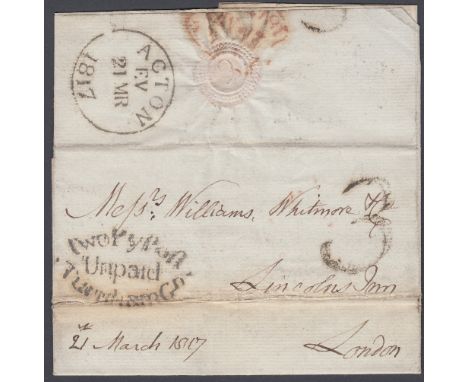 ACTON
EV
21 MR
1817
Messrs. Williams, Whitmore & Co
3
Two Py Post
Unpaid
Lincolns Inn
21st March 1817
London